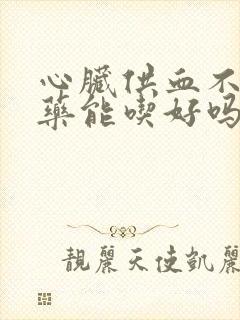 心臟供血不
藥能喫好吗
靚麗天使凱麗